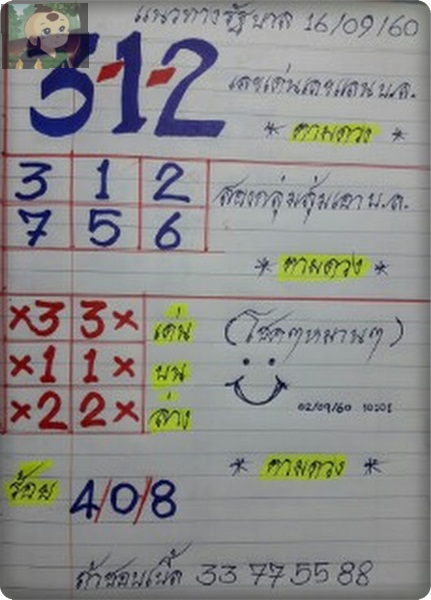 แนวทางรัฐบาล 16/09/60
3-1-2
เลขเด่นเลขแถน บ.ล.
* ตามดวง *
3 1 2
7 5 6
สองกลุ่มลุ้มเอา บ.ล.
* ตามดวง *
×3 3× เด่น
×1 1× บน
×2 2× ล่าง
(โชคดีๆหมานๆ)
02/09/60 10:01
* ตามดวง *
ร้อย 4/0/8
ถ้าชอบเบิ้ล 33 77 55 88